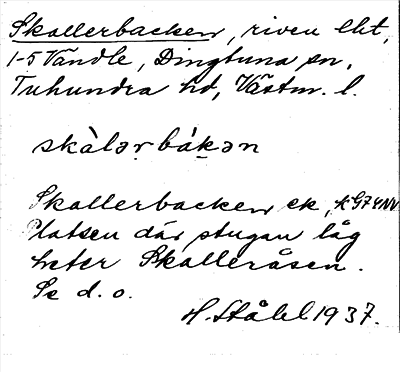 Skallerbacken, riven lht,
1-5 Vändle, Dingtuna sn,
Tuhundra hd, Västm. l.
skàlərbákən
Skallerbacken ek,
Platsen där stugan låg
heter Skalleråsen.
Se d. o.
H. Ståhl 1937.